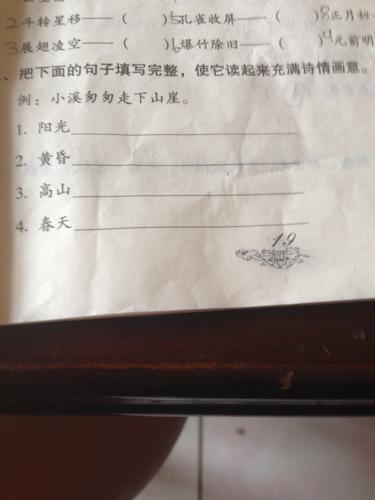 2斗转星移——（ ）5孔雀收屏——（ ）8正月初
3展翅凌空——（ ）6爆竹除旧——（ ）9元前明
、把下面的句子填写完整，使它读起来充满诗情画意。
例：小溪匆匆走下山崖。
1. 阳光
2. 黄昏
3. 高山
4. 春天
19